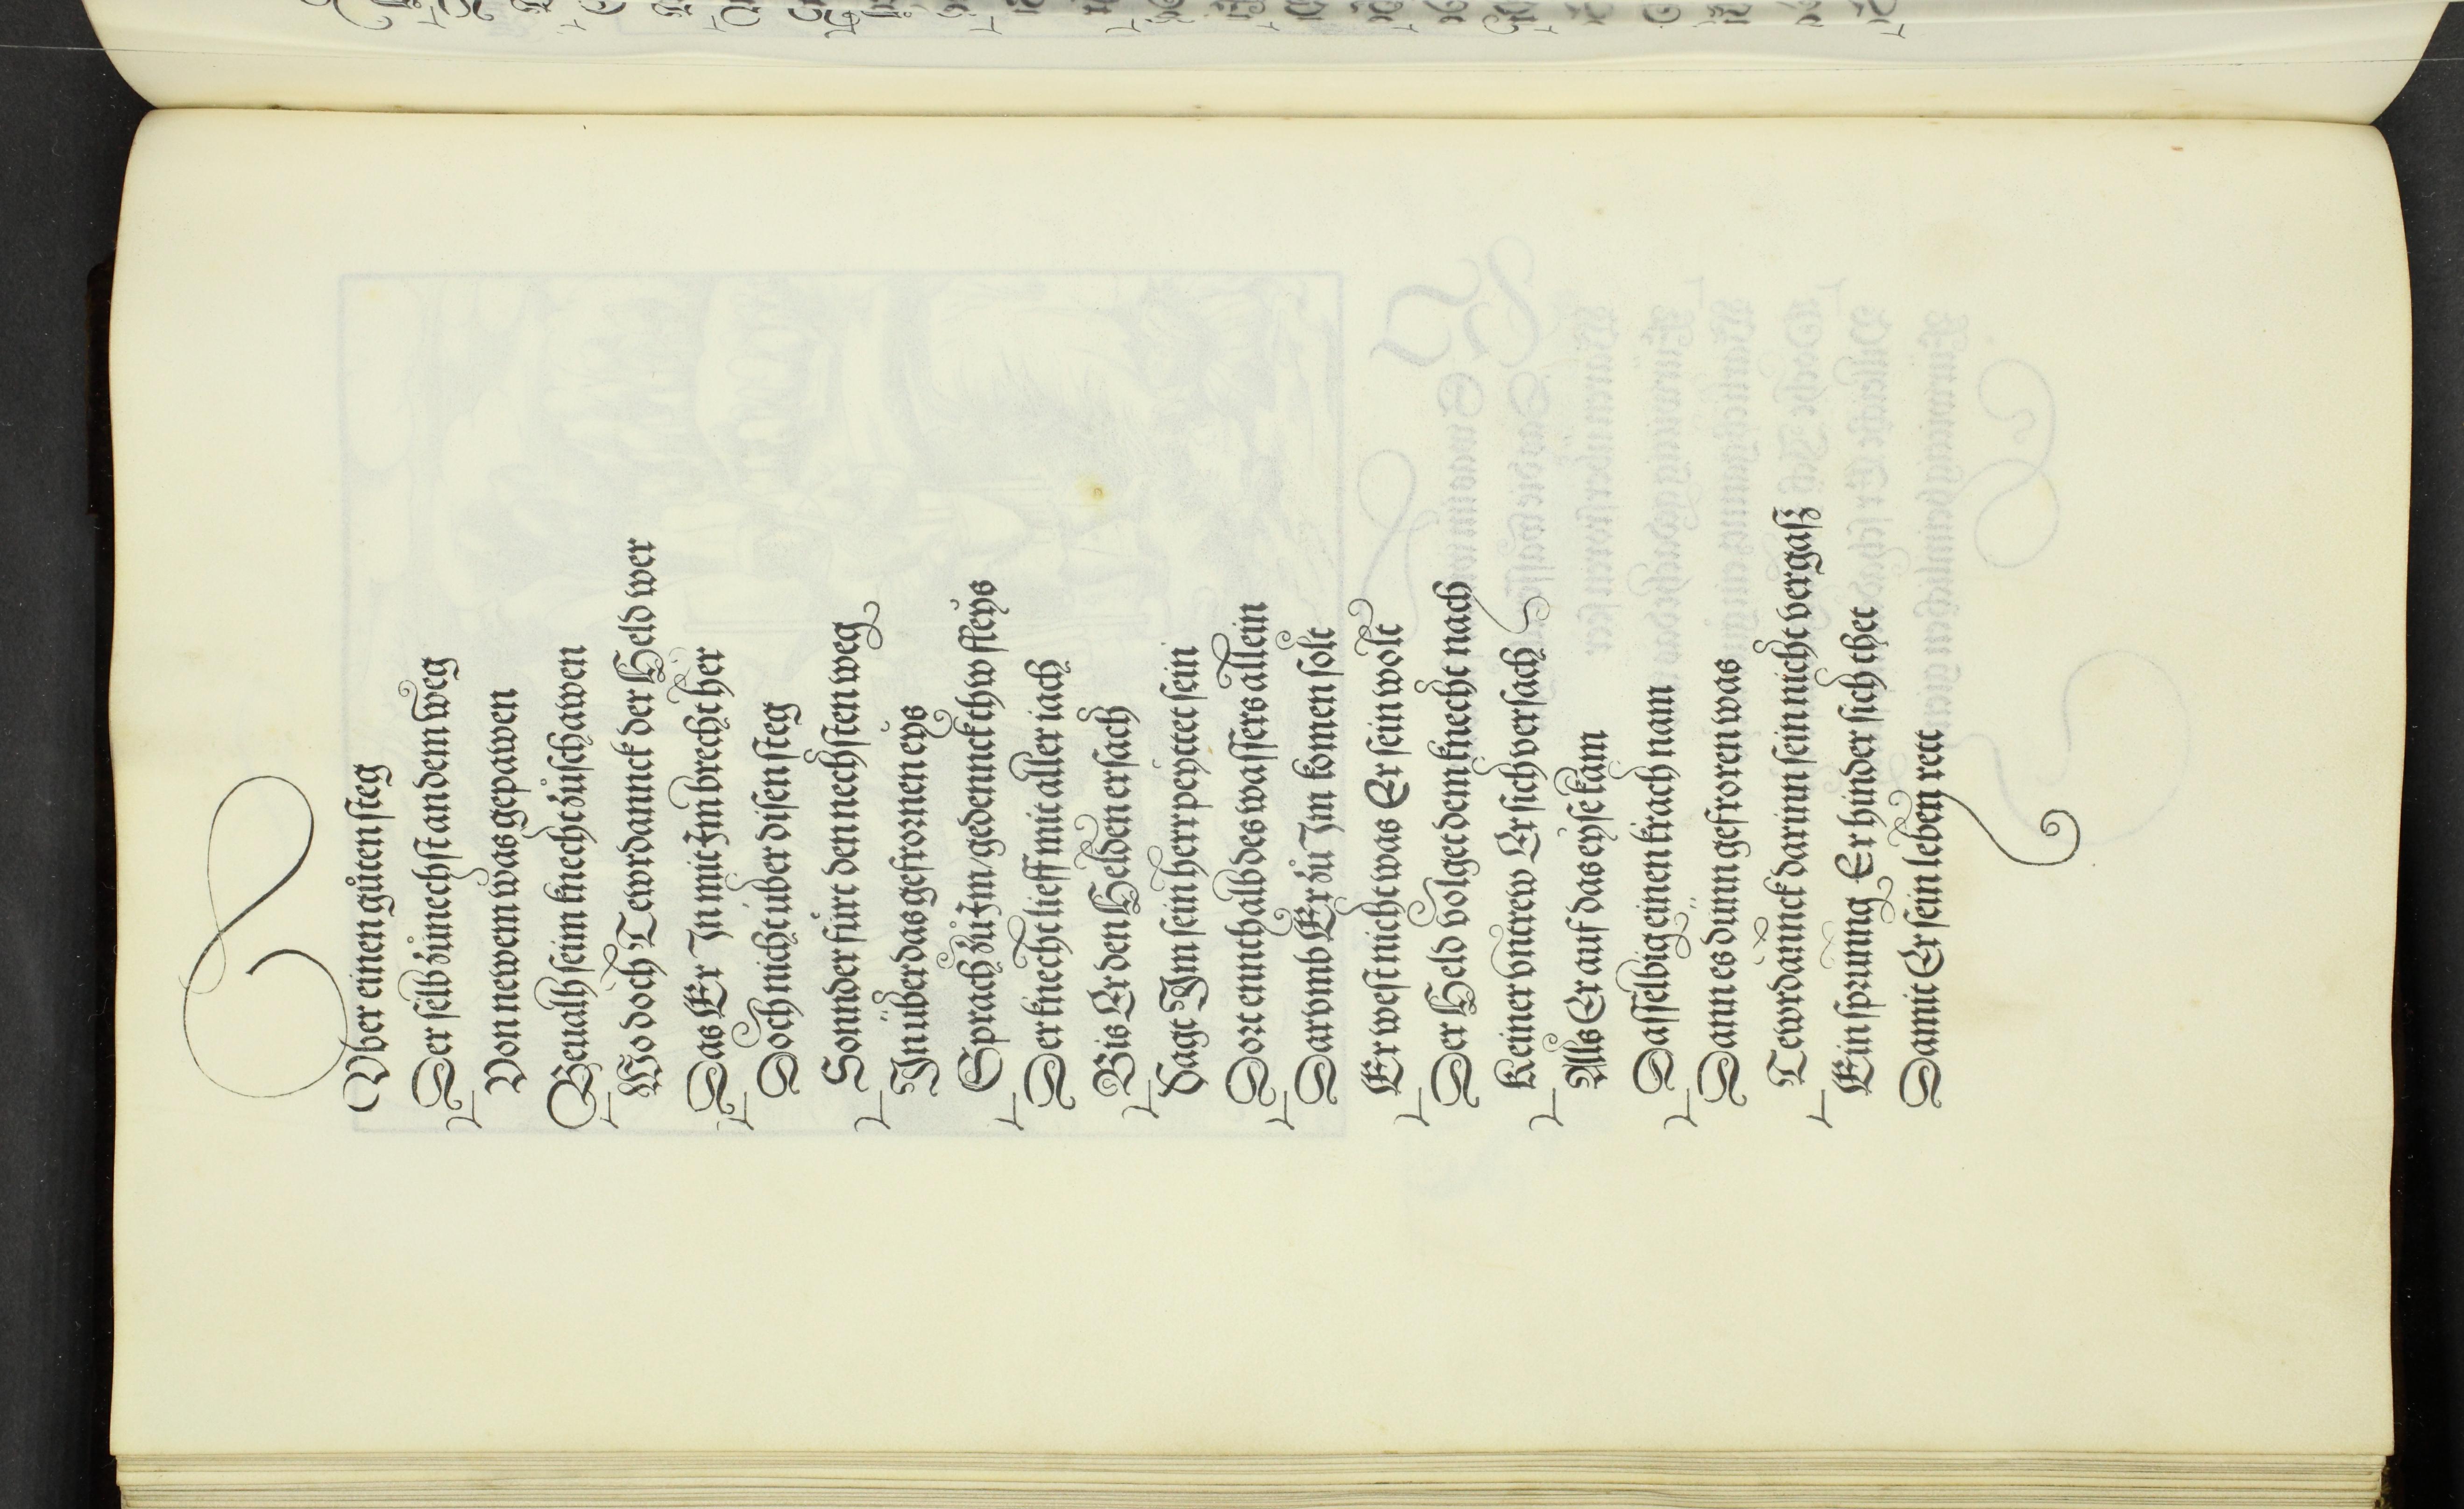 Vber einen gůten steg
Der selb zůnechst an dem weg
Von newem was gepawen
Beualh seim knecht zůschawen
Wo doch Tewrdannck der Held wer
Das Er In mit Im brecht her
Doch nicht über disen steg
Sonnder fürt den nechsten weg
In über das gefroren eys
Sprach zů Im / gedennck thw fleys
Der knecht lieff mit aller iach
Bis Er den Helden ersach
Sagt Im sein herr peytet sein
Dort ennthalb des wassers allein
Darvmb Er zů Im komen solt
Er west nicht was Er sein wolt
Der Held volget dem knecht nach
Keiner vntrew Er sich versach
Alls Er auf das eyse kam
Dasselbig einen krach nam
Dann es dünn gefroren was
Tewrdannck darinn sein nicht vergaß
Ein sprunng Er hinder sich thet
Damit Er sein leben rett